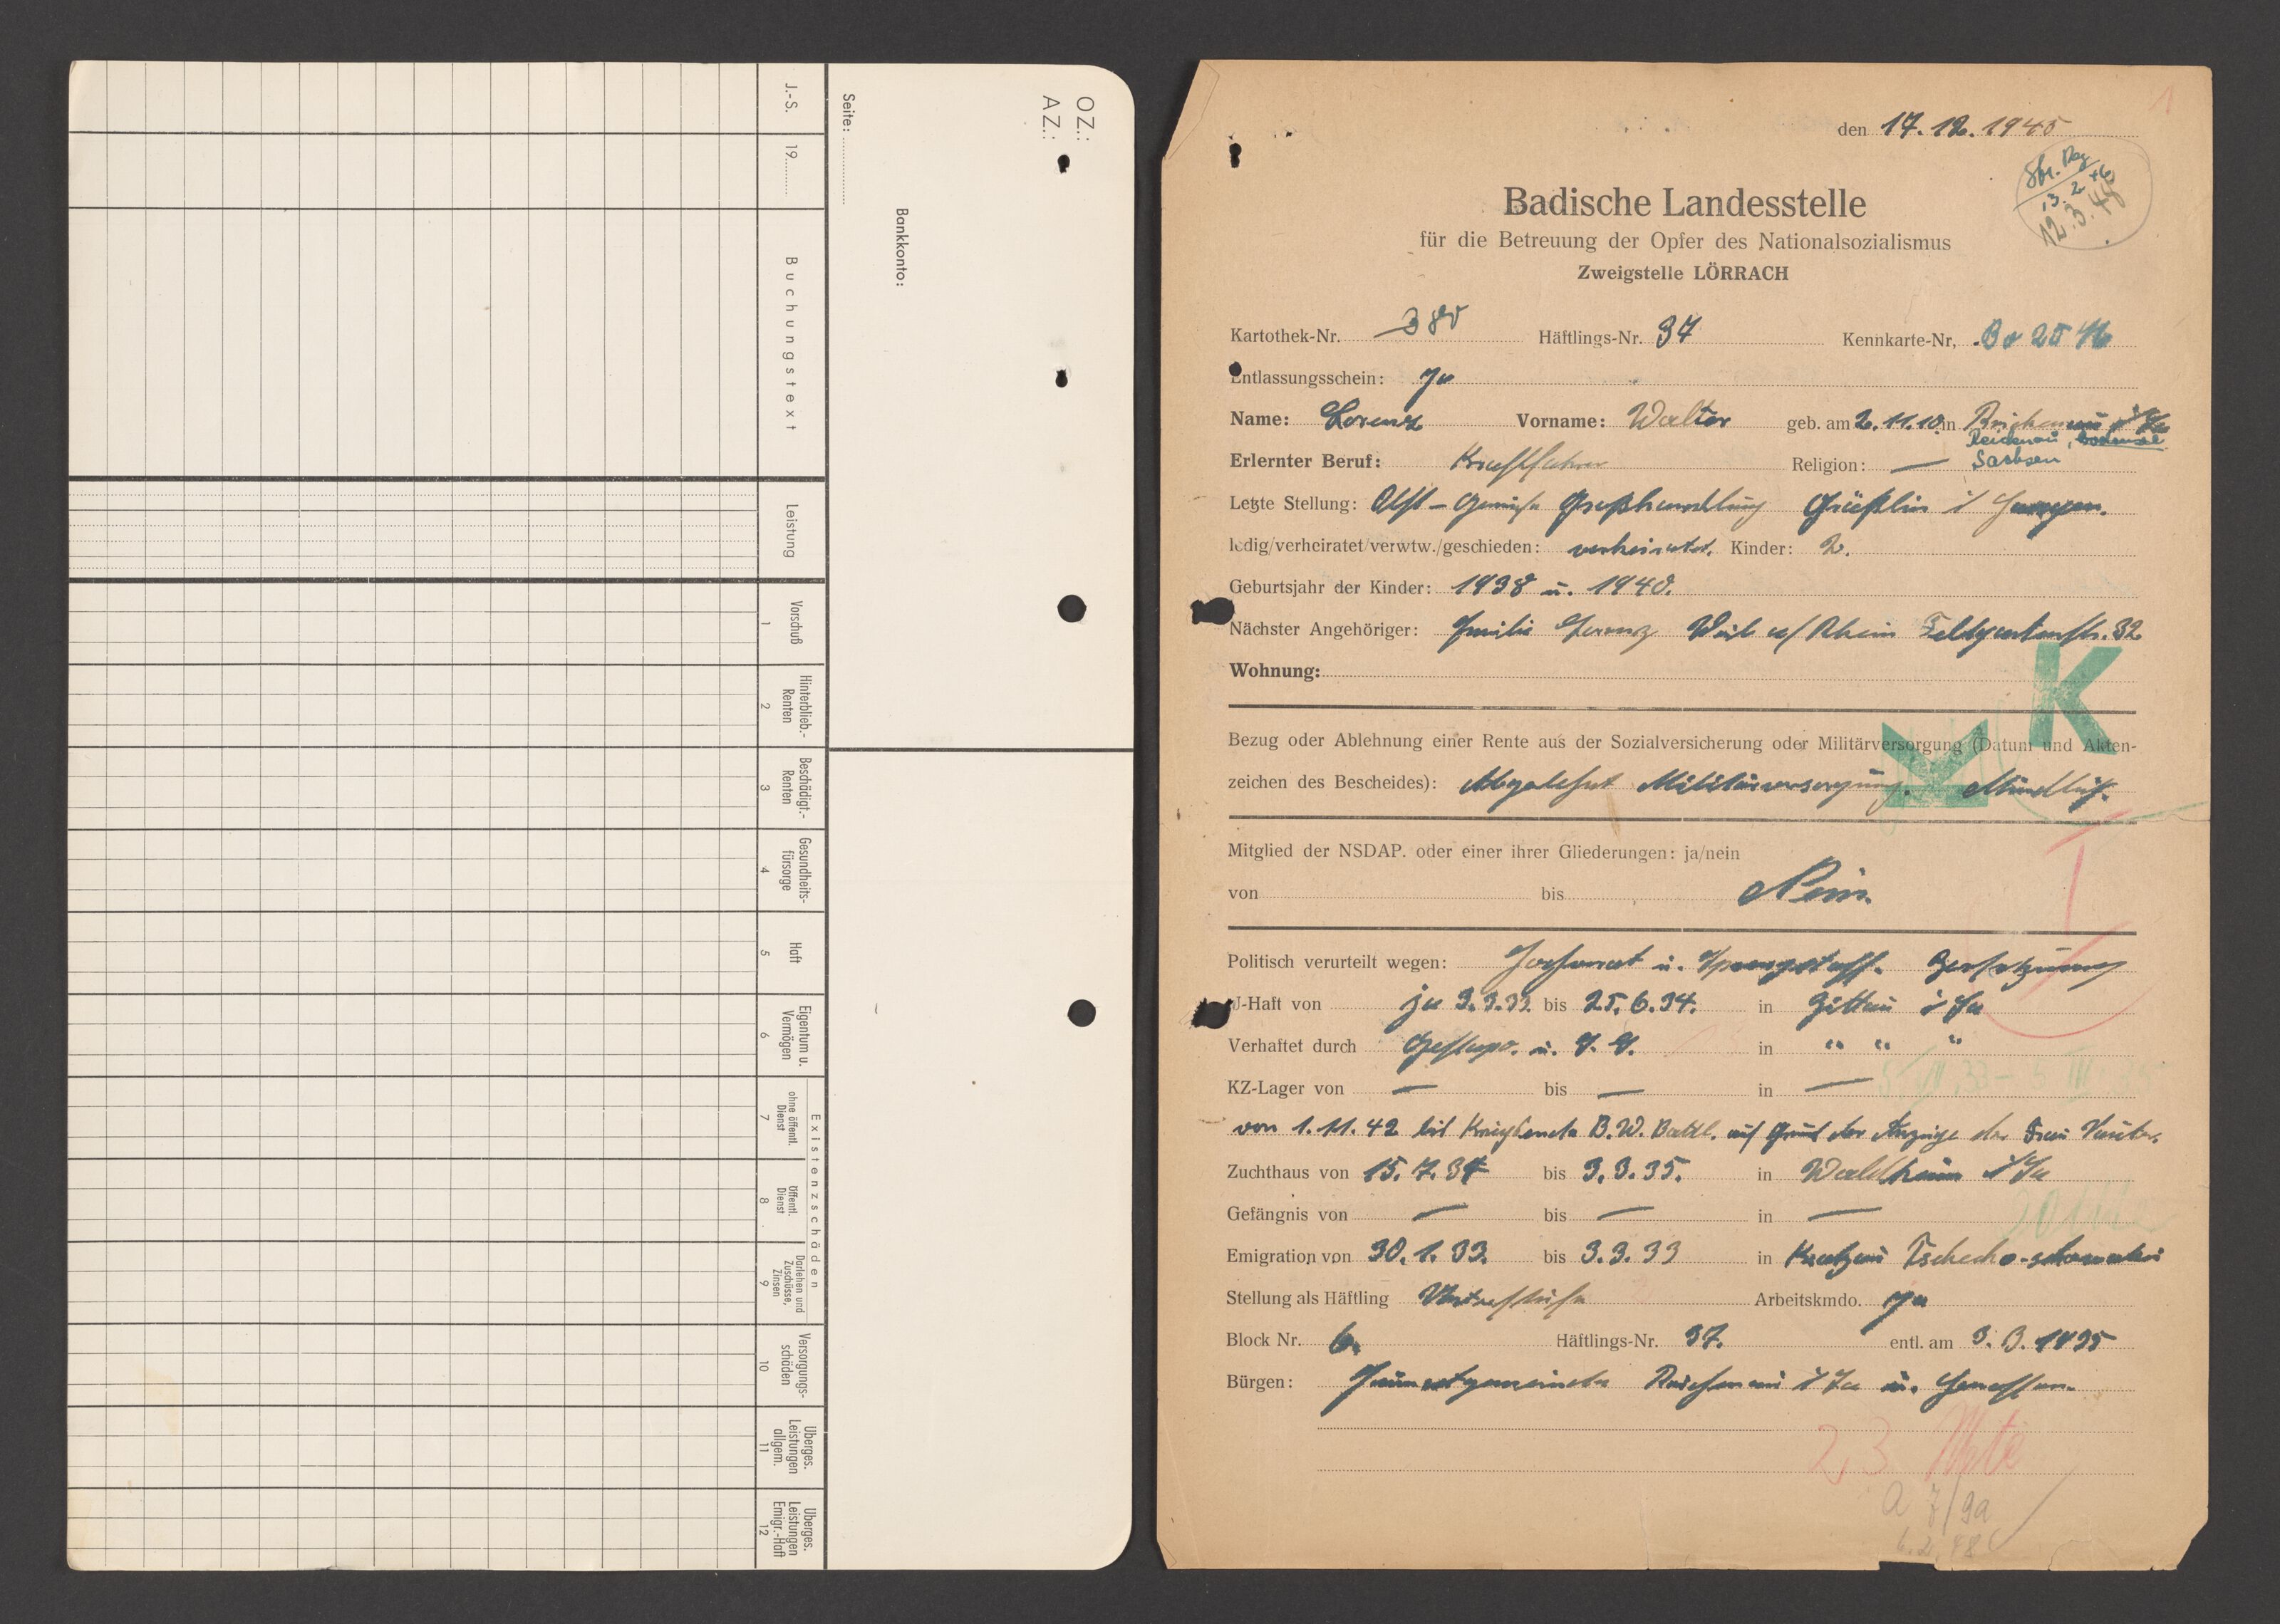 OZ.:
AZ.:
Bankkonto:
Seite:
J.-S.
19
Buchungstext
Leistung
Vorschuß
1
Hinterblieb.-
Renten
2
Beschädigt.-
Renten
3
Gesundheits-
fürsorge
4
Haft
5
Eigentum u.
Vermögen
6
Existenzschäden
ohne öffentl.
Dienst
7
öffentl.
Dienst
8
Darlehen und
Zuschüsse,
Zinsen
9
Versorgungs-
schäden
10
Überges.
Leistungen
allgem.
11
Überges.
Leistungen
Emigr.-Haft
12
1
den 17.12.1945
12.3.48
Badische Landesstelle
für die Betreuung der Opfer des Nationalsozialismus
Zweigstelle LÖRRACH
Kartothek-Nr. 380 Häftlings-Nr. 37 Kennkarte-Nr,
Entlassungsschein: Ja
Name: Lorenz Vorname: Walter geb. am 2.11.10 in Reichenau i/Sa
Reichenau,
Sachsen
Erlernter Beruf: Kraftfahrer Religion: —
Letzte Stellung: Obst - Gemüse Großhandlung Gräßlin i
ledig/verheiratet/verwtw./geschieden: verheiratet. Kinder: 2.
Geburtsjahr der Kinder: 1938 u. 1940.
Nächster Angehöriger: Emilie Lorenz Weil a/Rhein Feldgartenstr. 32
Wohnung:
K
K
Bezug oder Ablehnung einer Rente aus der Sozialversicherung oder Militärversorgung (Datum und Akten-
zeichen des Bescheides): Abgelehnt Militärversorgung. Mündlich.
Mitglied der NSDAP. oder einer ihrer Gliederungen: ja/nein
von bis Nein.
I
Politisch verurteilt wegen: Hochverrat u. Sprengstoff.
U-Haft von ja 3.3.33. bis 25.6.34. in Zittau i Sa
Verhaftet durch Gestapo. u. S.S. in " " "
KZ-Lager von — bis — in —
von 1.11.42 bis Kriegsende B.W. Batl. auf Grund der Anzeige der Frau
Zuchthaus von 15.7.34 bis 3.3.35. in Waldheim i/Sa
Gefängnis von — bis — in —
Emigration von 30.1.33. bis 3.3.33 in Kratzau Tschecho-slowakei
Stellung als Häftling Arbeitskmdo. Ja
Block Nr. 6. Häftlings-Nr. 37. entl. am 3.3.1935
Bürgen: Heimatgemeinde Reichenau i Sa u. Genossen.
23 Mte
a 7/9a
6.2.48